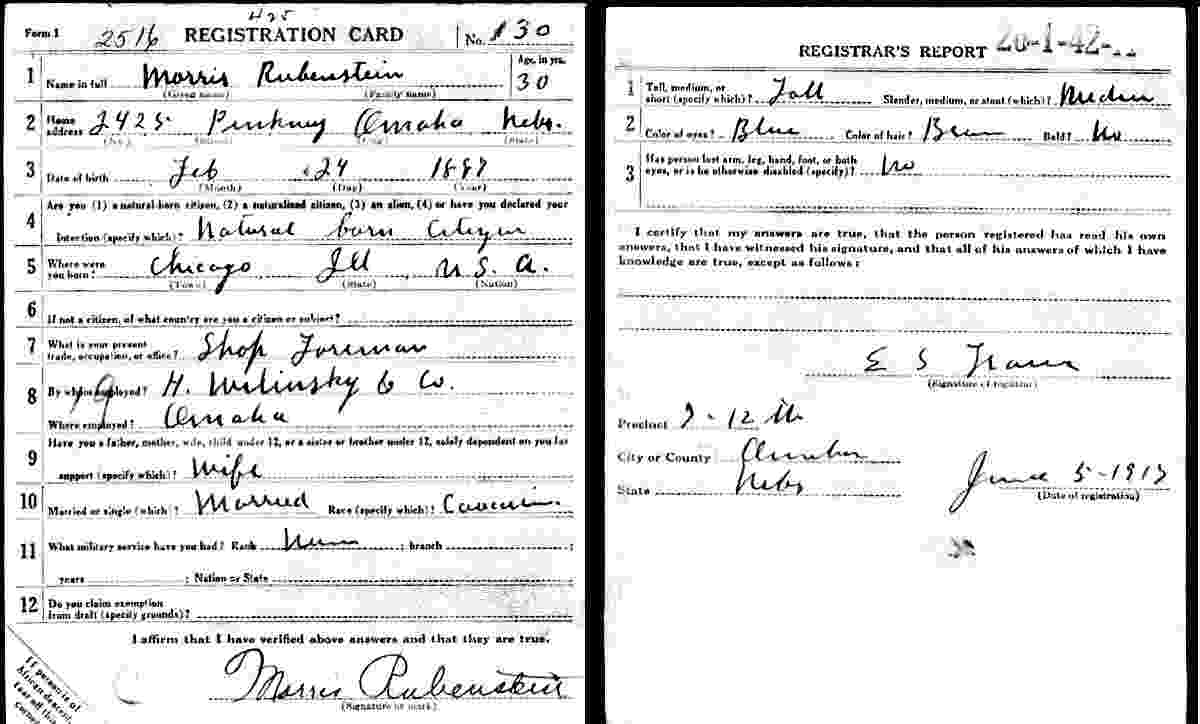 425
Form 1 2516 REGISTRATION CARD No. 130
1 Name in full Morris Rubenstein Age, in yrs. 30
(Given name) (Family name)
2 Home address 2425 Pinkney Omaha Nebs.
(No.) (Street) (City) (State)
3 Date of birth Feb 24 1887
(Month) (Day) (Year)
4 Are you (1) a natural-born citizen, (2) a naturalized citizen, (3) an alien, (4) or have you declared your
intention (specify which)? Natural born Citizen
5 Where were you born? Chicago Ill U.S.A.
(Town) (State) (Nation)
6 If not a citizen, of what country are you a citizen or subject?
7 What is your present trade, occupation, or office? Shop Foreman
8 By whom employed? H. Wilinsky & Co.
Where employed? Omaha
9 Have you a father, mother, wife, child under 12, or a sister or brother under 12, solely dependent on you for
support (specify which)? Wife
10 Married or single (which)? Married Race (specify which)? Caucasian
11 What military service have you had? Rank None ; branch ;
years ; Nation or State
12 Do you claim exemption
from draft (specify grounds)?
I affirm that I have verified above answers and that they are true.
Morris Rubenstein
(Signature or mark)
If person is of
African descent,
tear off this
corner
REGISTRAR'S REPORT 26-1-42-
1 Tall, medium, or short (specify which)? Tall Slender, medium, or stout (which)? Medium
2 Color of eyes? Blue Color of hair? Brown Bald? No
3 Has person lost arm, leg, hand, foot, or both
eyes, or is he otherwise disabled (specify)? No
I certify that my answers are true, that the person registered has read his own
answers, that I have witnessed his signature, and that all of his answers of which I have
knowledge are true, except as follows:
E S
(Signature of registrar)
Precinct 7-12th
City or County Omaha
State Nebs
June 5-1917
(Date of registration)